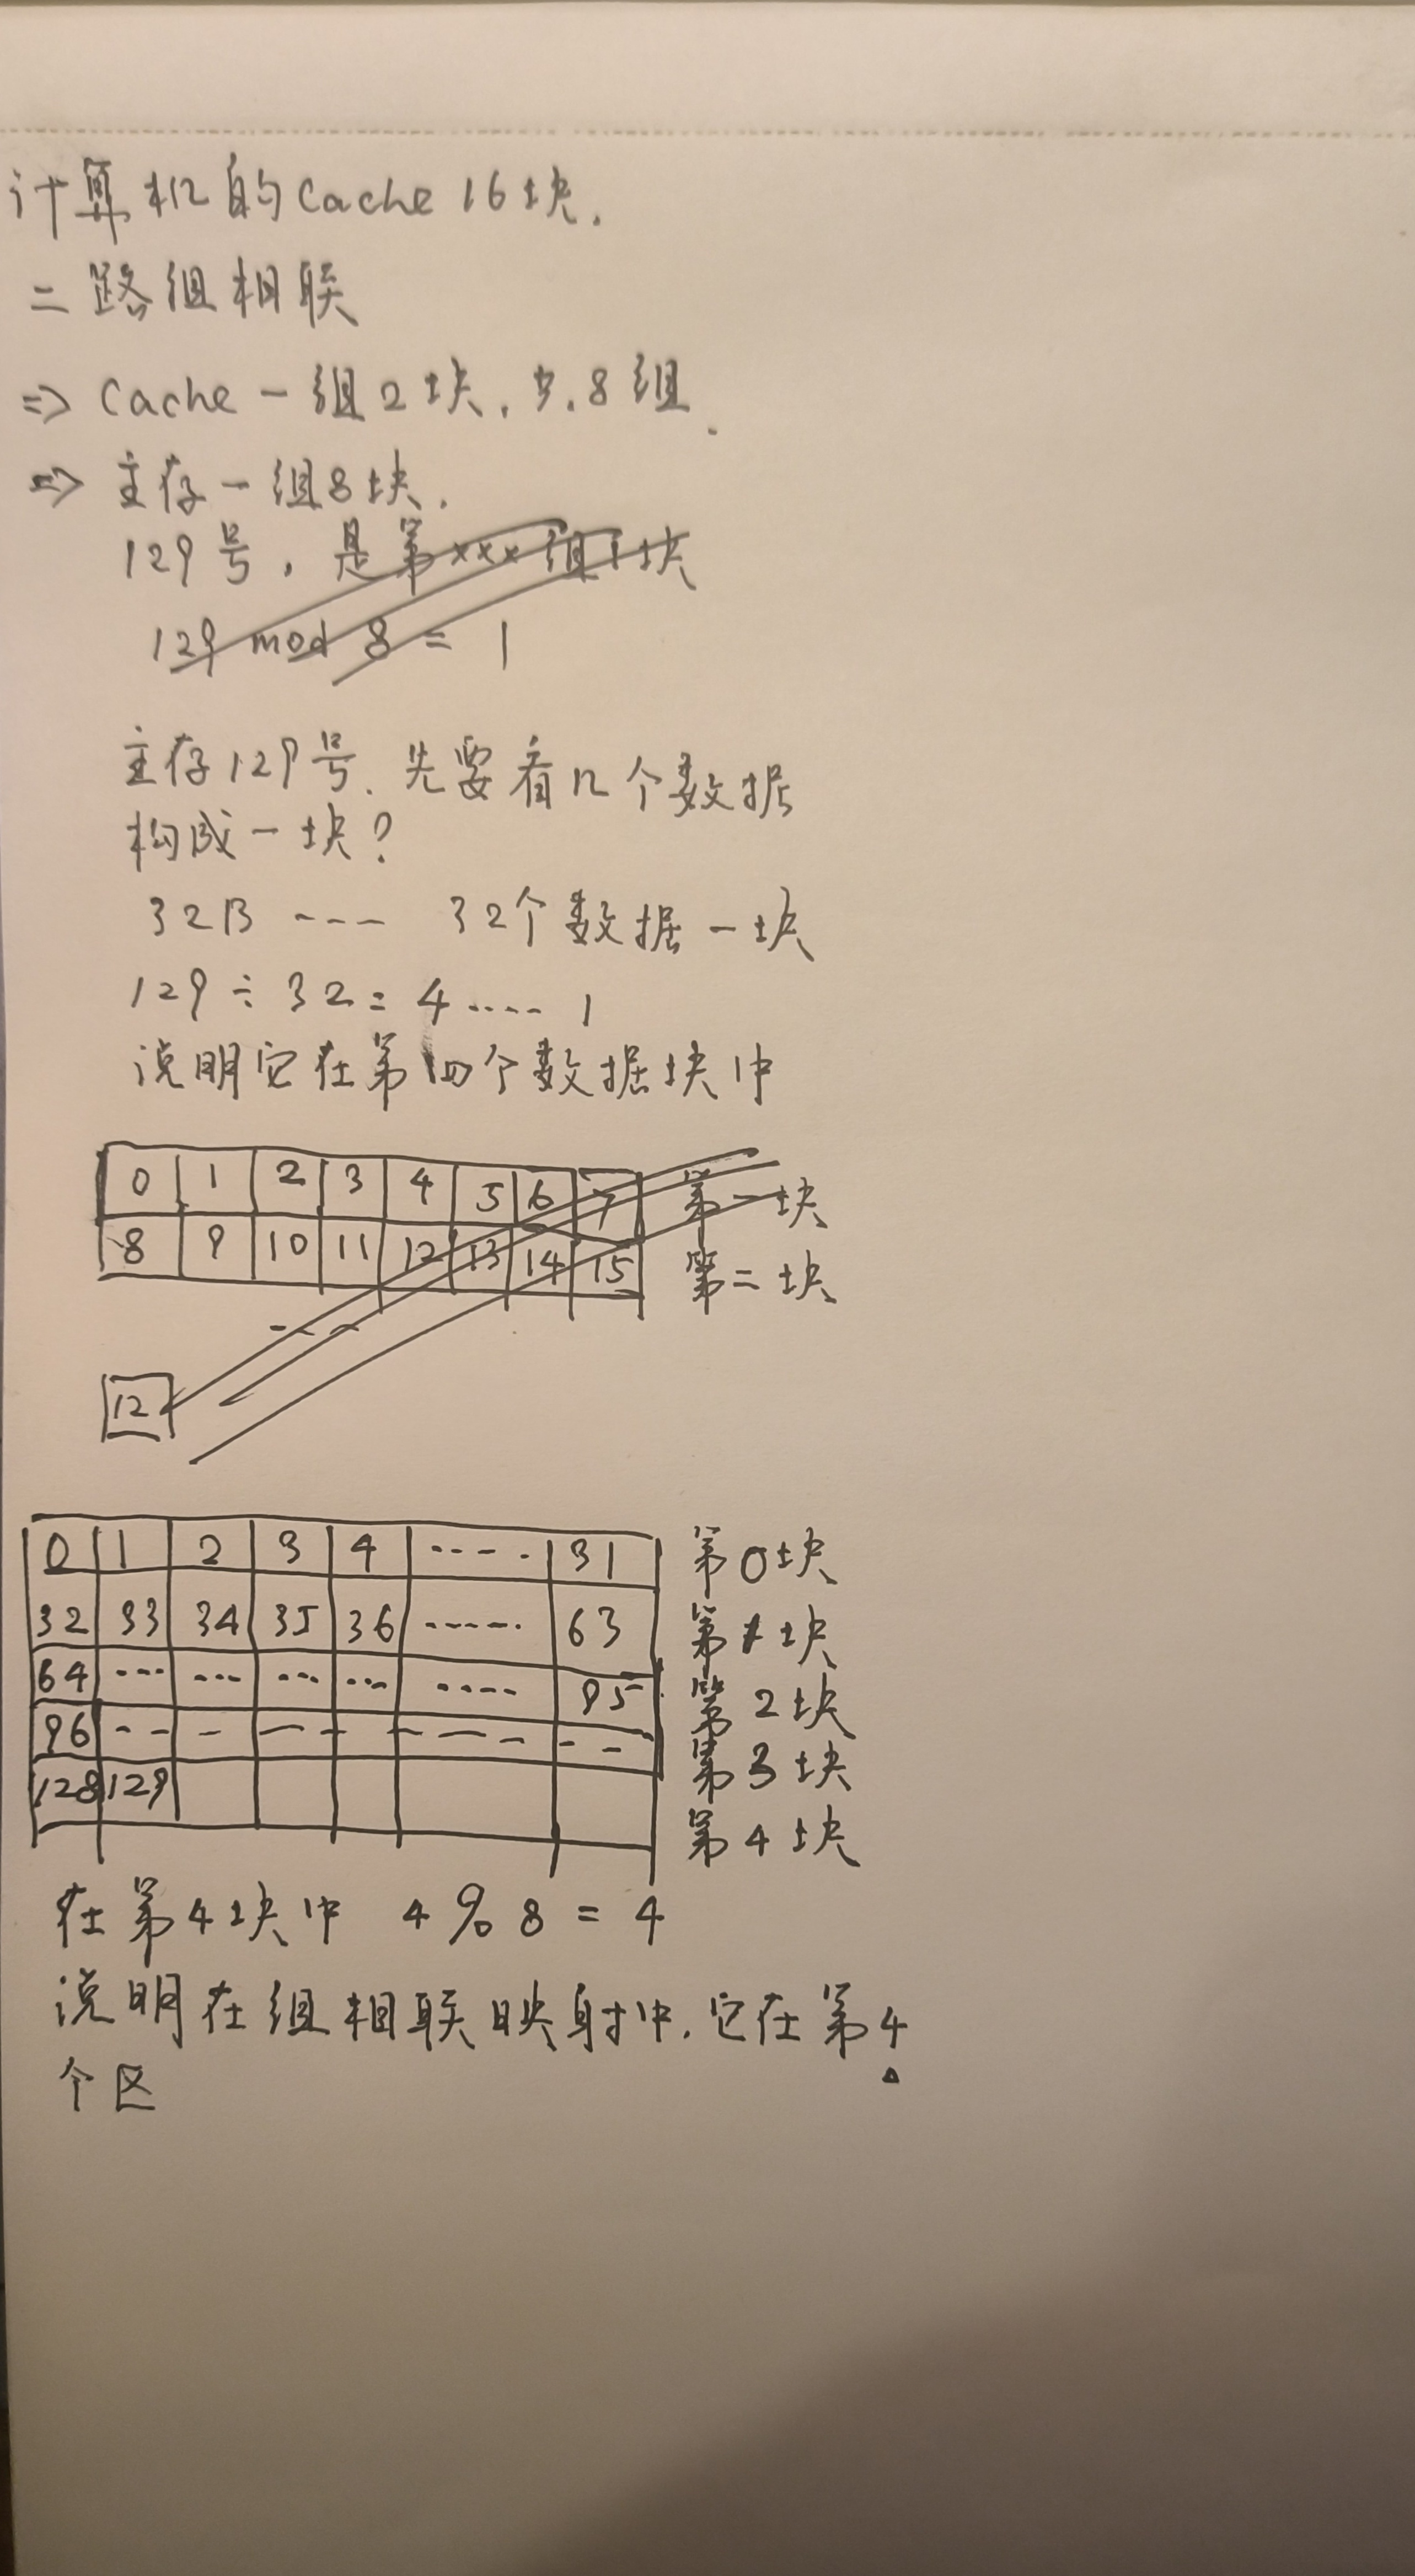 计算机的Cache 16块.
二路组相联
=> Cache 一组2块. 8组.
=> 主存一组8块.
129号, 是第xxx组1块
129 mod 8 = 1
主存129号. 先要看几个数据
构成一块?
32B --- 32个数据一块
129 ÷ 32 = 4 .... 1
说明它在第四个数据块中
0 1 2 3 4 5 6 7 第一块
8 9 10 11 12 13 14 15 第二块
---
12
0 1 2 3 4 ..... 31 第0块
32 33 34 35 36 ...... 63 第1块
64 ... ... ... ... .... 95 第2块
96 - - - - - - - - - - 第3块
128 129
第4块
在第4块中 4 % 8 = 4
说明在组相联映射中. 它在第4
个区